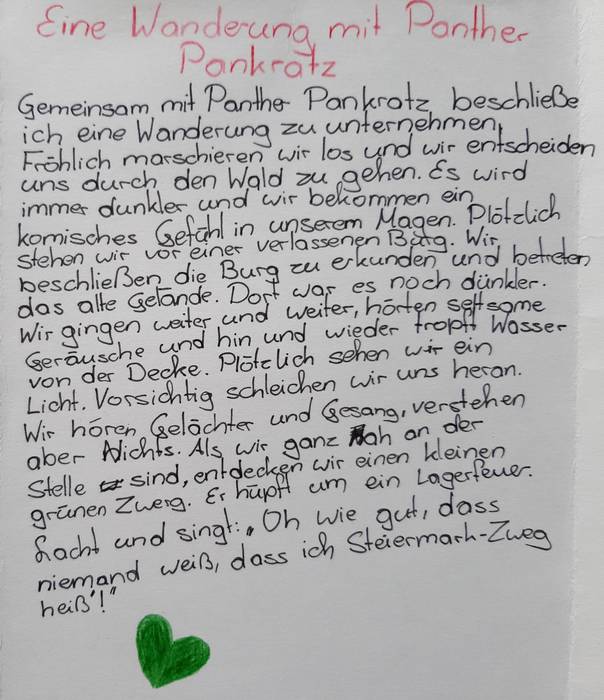 Eine Wanderung mit Panther
Pankratz
Gemeinsam mit Panther Pankratz beschließe
ich eine Wanderung zu unternehmen.
Fröhlich marschieren wir los und wir entscheiden
uns durch den Wald zu gehen. Es wird
immer dunkler und wir bekommen ein
komisches Gefühl in unserem Magen. Plötzlich
stehen wir vor einer verlassenen Burg. Wir
beschließen die Burg zu erkunden und betreten
das alte Gelände. Dort war es noch dünkler.
Wir gingen weiter und weiter, hörten seltsame
Geräusche und hin und wieder tropft Wasser
von der Decke. Plötzlich sehen wir ein
Licht. Vorsichtig schleichen wir uns heran.
Wir hören Gelächter und Gesang, verstehen
aber Nichts. Als wir ganz nah an der
Stelle sind, entdecken wir einen kleinen
grünen Zwerg. Er hüpft um ein Lagerfeuer.
Lacht und singt: „Oh wie gut, dass
niemand weiß, dass ich Steiermark-Zweg
heiß'!"